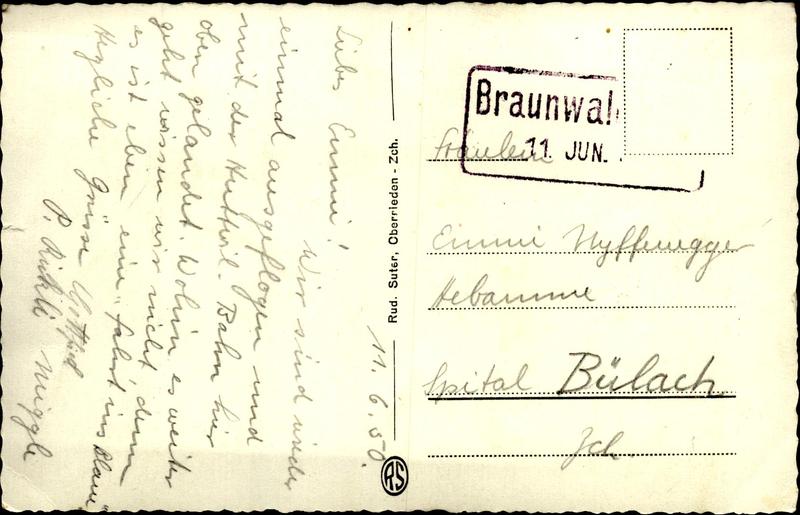 11. 6. 50.
Liebes Emmi! Wir sind wieder
einmal ausgeflogen und
mit der Huttwil-Bahn hier
oben gelandet. Wohin es weiter
geht wissen wir nicht denn
es ist eben eine "Fahrt ins Blaue"
Herzliche Grüsse Gottfried
P. Miggli
Rud. Suter, Oberrieden - Zch.
RS
Braunwal
11 JUN.
Fräulein
Emmi Nyffenegger
Hebamme
Spital Bülach
Zch.